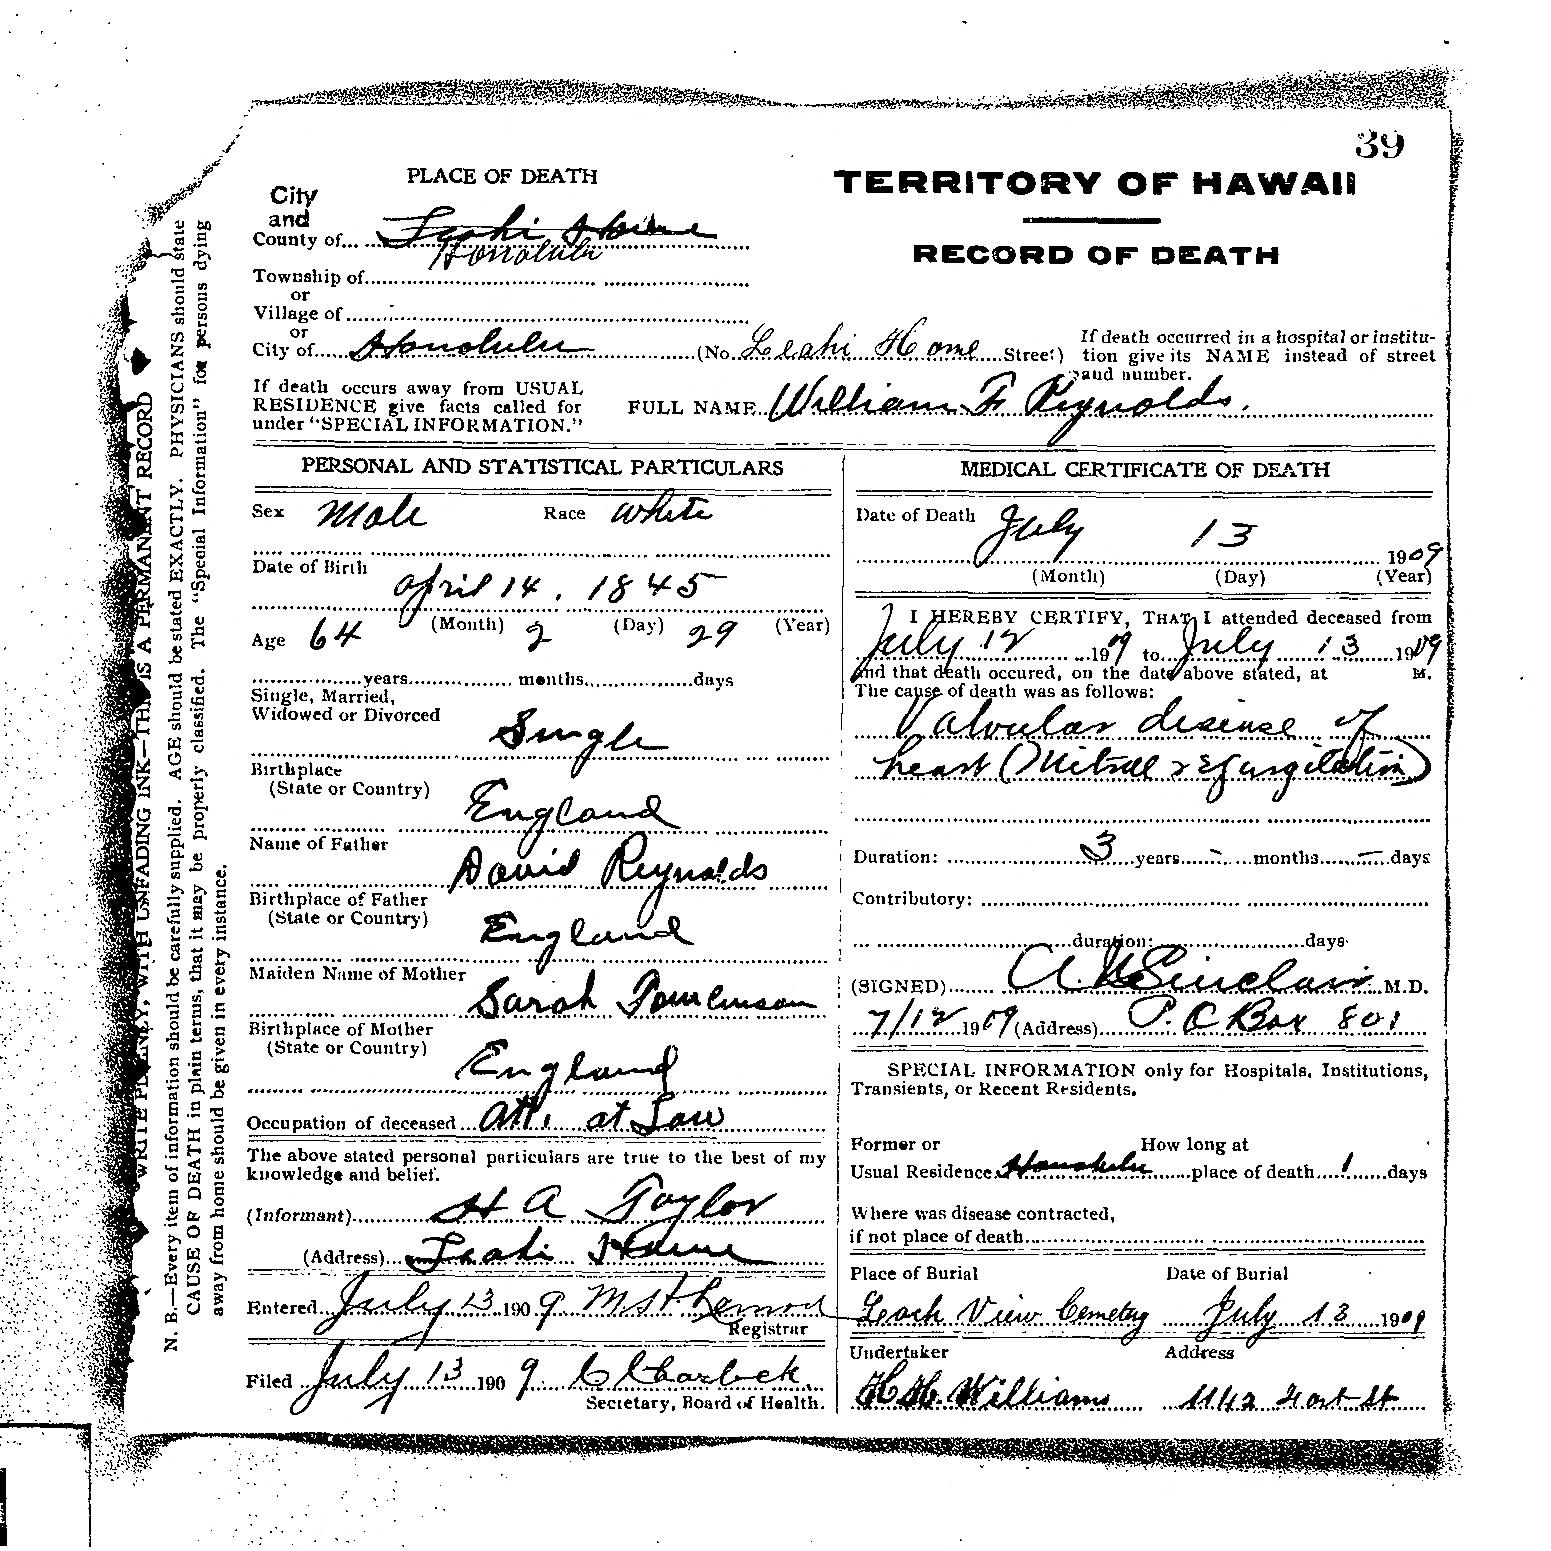 39
PLACE OF DEATH
TERRITORY OF HAWAII
RECORD OF DEATH
City
and
County of Leahi Home
Honolulu
Township of
or
Village of
or
City of Honolulu (No. Leahi Home Street)
If death occurred in a hospital or institu-
tion give its NAME instead of street
and number.
If death occurs away from USUAL
RESIDENCE give facts called for
under "SPECIAL INFORMATION."
FULL NAME William F Reynolds.
PERSONAL AND STATISTICAL PARTICULARS
Sex Male Race White
Date of Birth
April 14, 1845
(Month) (Day) (Year)
Age 64 2 29
years months days
Single, Married,
Widowed or Divorced
Single
Birthplace
(State or Country)
England
Name of Father
David Reynolds
Birthplace of Father
(State or Country)
England
Maiden Name of Mother
Sarah Tomlinson
Birthplace of Mother
(State or Country)
England
Occupation of deceased Att. at Law
The above stated personal particulars are true to the best of my
knowledge and belief.
(Informant) H A Taylor
(Address) Leahi Home
Entered July 13 1909
Registrar
Filed July 13 1909
Secretary, Board of Health.
MEDICAL CERTIFICATE OF DEATH
Date of Death July 13 1909
(Month) (Day) (Year)
I HEREBY CERTIFY, THAT I attended deceased from
July 12 1909 to July 13 1909
and that death occured, on the date above stated, at M.
The cause of death was as follows:
Valvular disease of
heart (Mitral regurgitation)
Duration: 3 years - months - days
Contributory:
duration: days
(SIGNED) Sinclair M.D.
7/12 1909 (Address) P.O Box 801
SPECIAL INFORMATION only for Hospitals, Institutions,
Transients, or Recent Residents.
Former or
Usual Residence Honolulu
How long at
place of death 1 days
Where was disease contracted,
if not place of death
Place of Burial Date of Burial
Loch View Cemetery July 13 1909
Undertaker Address
H. H. Williams 1142 Fort St
N. B.—Every item of information should be carefully supplied. AGE should be stated EXACTLY. PHYSICIANS should state
CAUSE OF DEATH in plain terms, that it may be properly classified. The "Special Information" for persons dying
away from home should be given in every instance.
WRITE PLAINLY, WITH UNFADING INK—THIS IS A PERMANENT RECORD